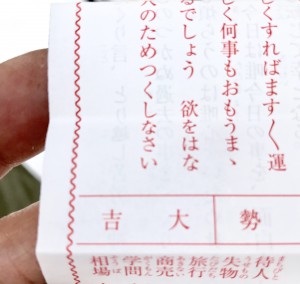 くすればますく運
しく何事もおもうまゝ
でしょう 欲をはな
のためつくしなさい
勢 大吉
待人
失物
旅行
商売
学問
相場